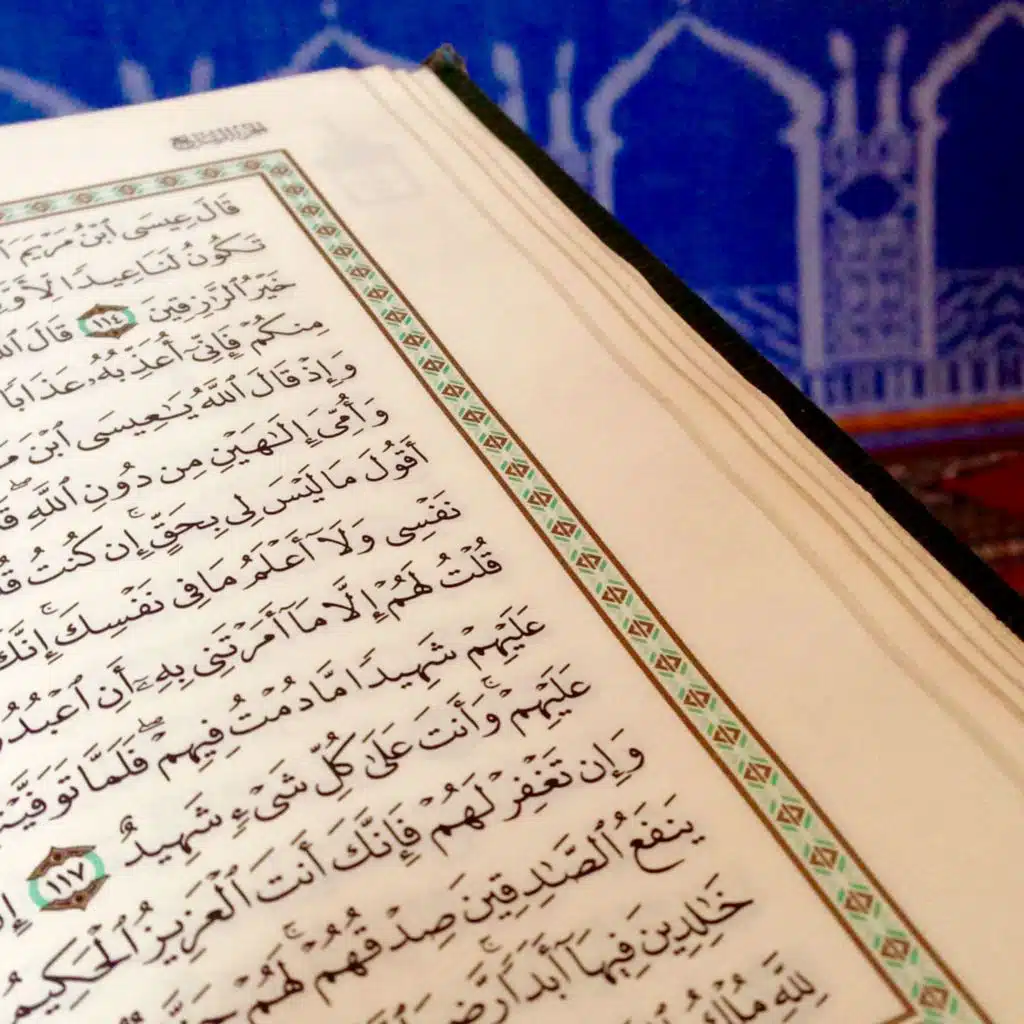 قَالَ عِيسَى ٱبْنُ مَرْيَمَ
تَكُونُ لَنَا عِيدًا
خَيْرُ ٱلرَّٰزِقِينَ ١١٤ قَالَ
مِنكُمْ فَإِنِّىٓ أُعَذِّبُهُۥ عَذَابًا
وَإِذْ قَالَ ٱللَّهُ يَٰعِيسَى ٱبْنَ
وَأُمِّىَ إِلَٰهَيْنِ مِن دُونِ ٱللَّهِۖ
أَقُولَ مَا لَيْسَ لِى بِحَقٍّۚ إِن كُنتُ
نَفْسِى وَلَآ أَعْلَمُ مَا فِى نَفْسِكَۚ إِنَّكَ
قُلْتُ لَهُمْ إِلَّا مَآ أَمَرْتَنِى بِهِۦٓ أَنِ
عَلَيْهِمْ شَهِيدًا مَّا دُمْتُ فِيهِمْۖ فَلَمَّا
عَلَيْهِمْۚ وَأَنتَ عَلَىٰ كُلِّ شَىْءٍ شَهِيدٌ ١١٧
وَإِن تَغْفِرْ لَهُمْ فَإِنَّكَ أَنتَ ٱلْعَزِيزُ ٱلْحَكِيمُ
يَنفَعُ ٱلصَّٰدِقِينَ صِدْقُهُمْۚ لَهُمْ
خَٰلِدِينَ فِيهَآ أَبَدًاۚ
لِلَّهِ مُلْكُ